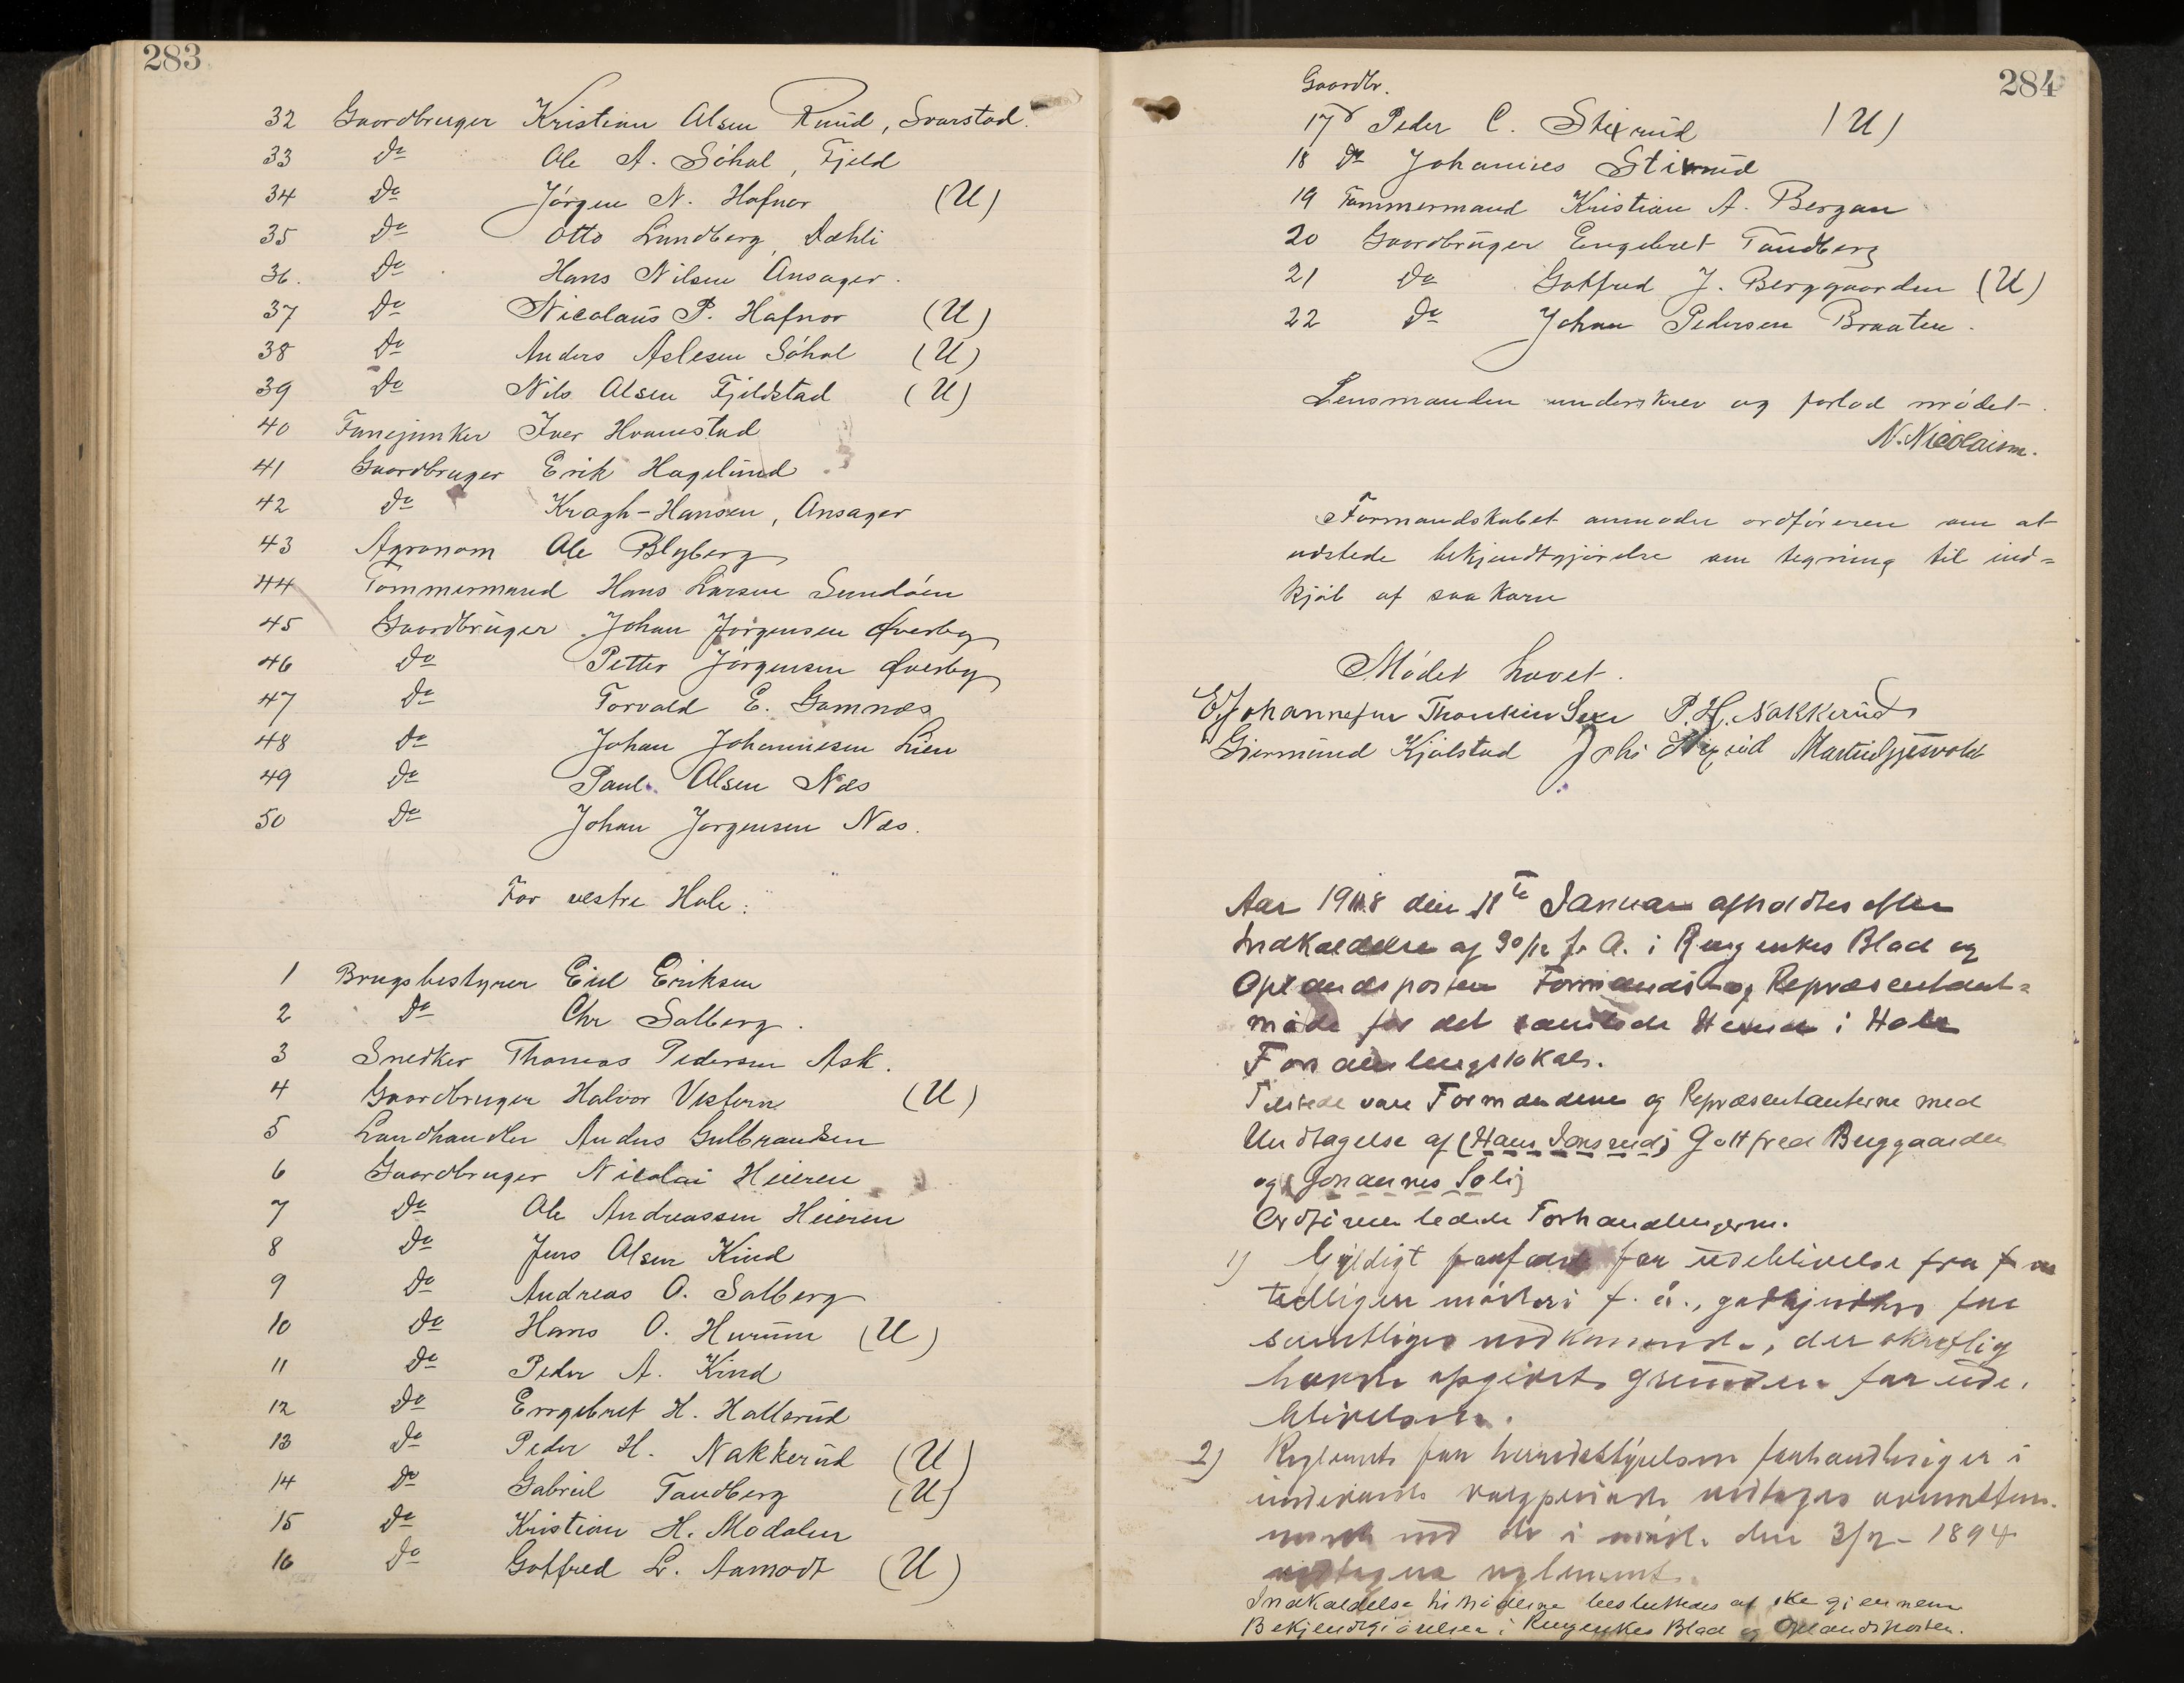 283
32 Gaardbruger Kristian Olsen Ruud, Svarstad.
33 Do Ole A. Sóhol, Fjeld
34 Do Jórgen N. Hafnor (U)
35 Do Otto Lundberg, Dæhli
36. Do Hans Nilsen Onsager.
37 Do Nicolaus P. Hafnor (U)
38 Do Anders Aslesen Sóhol (U)
39 Do Nils Olsen Fjeldstad (U)
40 Fanejunker Iver Hvamstad
41 Gaardbruger Erik Hagelund
42 Do Kragh-Hansen, Onsager
43 Agronom Ole Blyberg
44 Tømmermand Hans Larsen Sundóen
45 Gaardbruger Johan Jörgensen Øverby
46 Do Petter Jörgensen Øverby
47 Do Torvald E. Gomnæs
48 Do Johan Johannesen Lien
49 Do Paul Olsen Næs
50 Do Johan Jorgensen Næs.
For vestre Hole:
1 Brugsbestyrer Eril Eriksen
2 Do Chr Solberg.
3 Snedker Thomas Pedersen Ask.
4 Gaardbruger Halvor Vestern (U)
5 Landhandler Anders Gulbrandsen
6 Gaardbruger Nicolai Heieren
7 Do Ole Andreassen Heieren
8 Do Jens Olsen Kind
9 Do Andreas O. Solberg
10 Do Hans O. Hurum (U)
11 Do Peder A. Kind
12 Do Engebret H. Hallerud
13 Do Peder H. Nakkerud (U)
14 Do Gabriel Tandberg (U)
15 Do Kristian H. Modalen
16 Do Gotfred L. Aamodt (U)
284
Gaardbr.
17 Peder C. Stixrud (U)
18 Do Johannes Stixrud
19 Tømmermand Kristian A. Bergan
20 Gaardbruger Engebret Tandberg
21 Do Gotfred J. Berggaarden (U)
22 Do Johan Pedersen Braaten.
Lensmanden underskrev og forlod mödet.
N. Nicolaisen.
Formandskabet anmoder ordföreren om at
udstede bekjendtgjörelse om tegning til ind=
kjöb af saakorn
Módet hævet.
E Johannesen Thorstein Sexe P. H. Nakkerud
Giermund Kjölstad Johs Stixrud Martin Gjesvold
Aar 1908 den 11te Januar afholdtes efter
Indkaldelse af 30/12 f. A. i Ringerikes Blad og
Oplandsposten Formands- og Repræsentant=
möde for det samlede Herred i Hole
Forsamlingslokale.
Tilstede vare Formændene og Repræsentanterne med
Undtagelse af (Hans Jonsrud) Gottfred Berggaarden
og (Johannes Solli)
Ordföreren ledede Forhandlingerne.
1) Gyldigt forfald for udeblivelse fra
tidligere möder i f. å., godkjendtes for
samtlige vedkommende, der skriftlig
havde opgivet grunden for ude,
blivelsen.
2) Reglement for herredsstyrelsens forhandlinger i
inderværende valgperiode vedtages overensstem.
mende med det i möde den 3/2- 1894
vedtagne reglement.
Indkaldelse til Möderne besluttedes at ske gjennem
Bekjendtgjörelse i Ringerikes Blad og Oplandsposten.